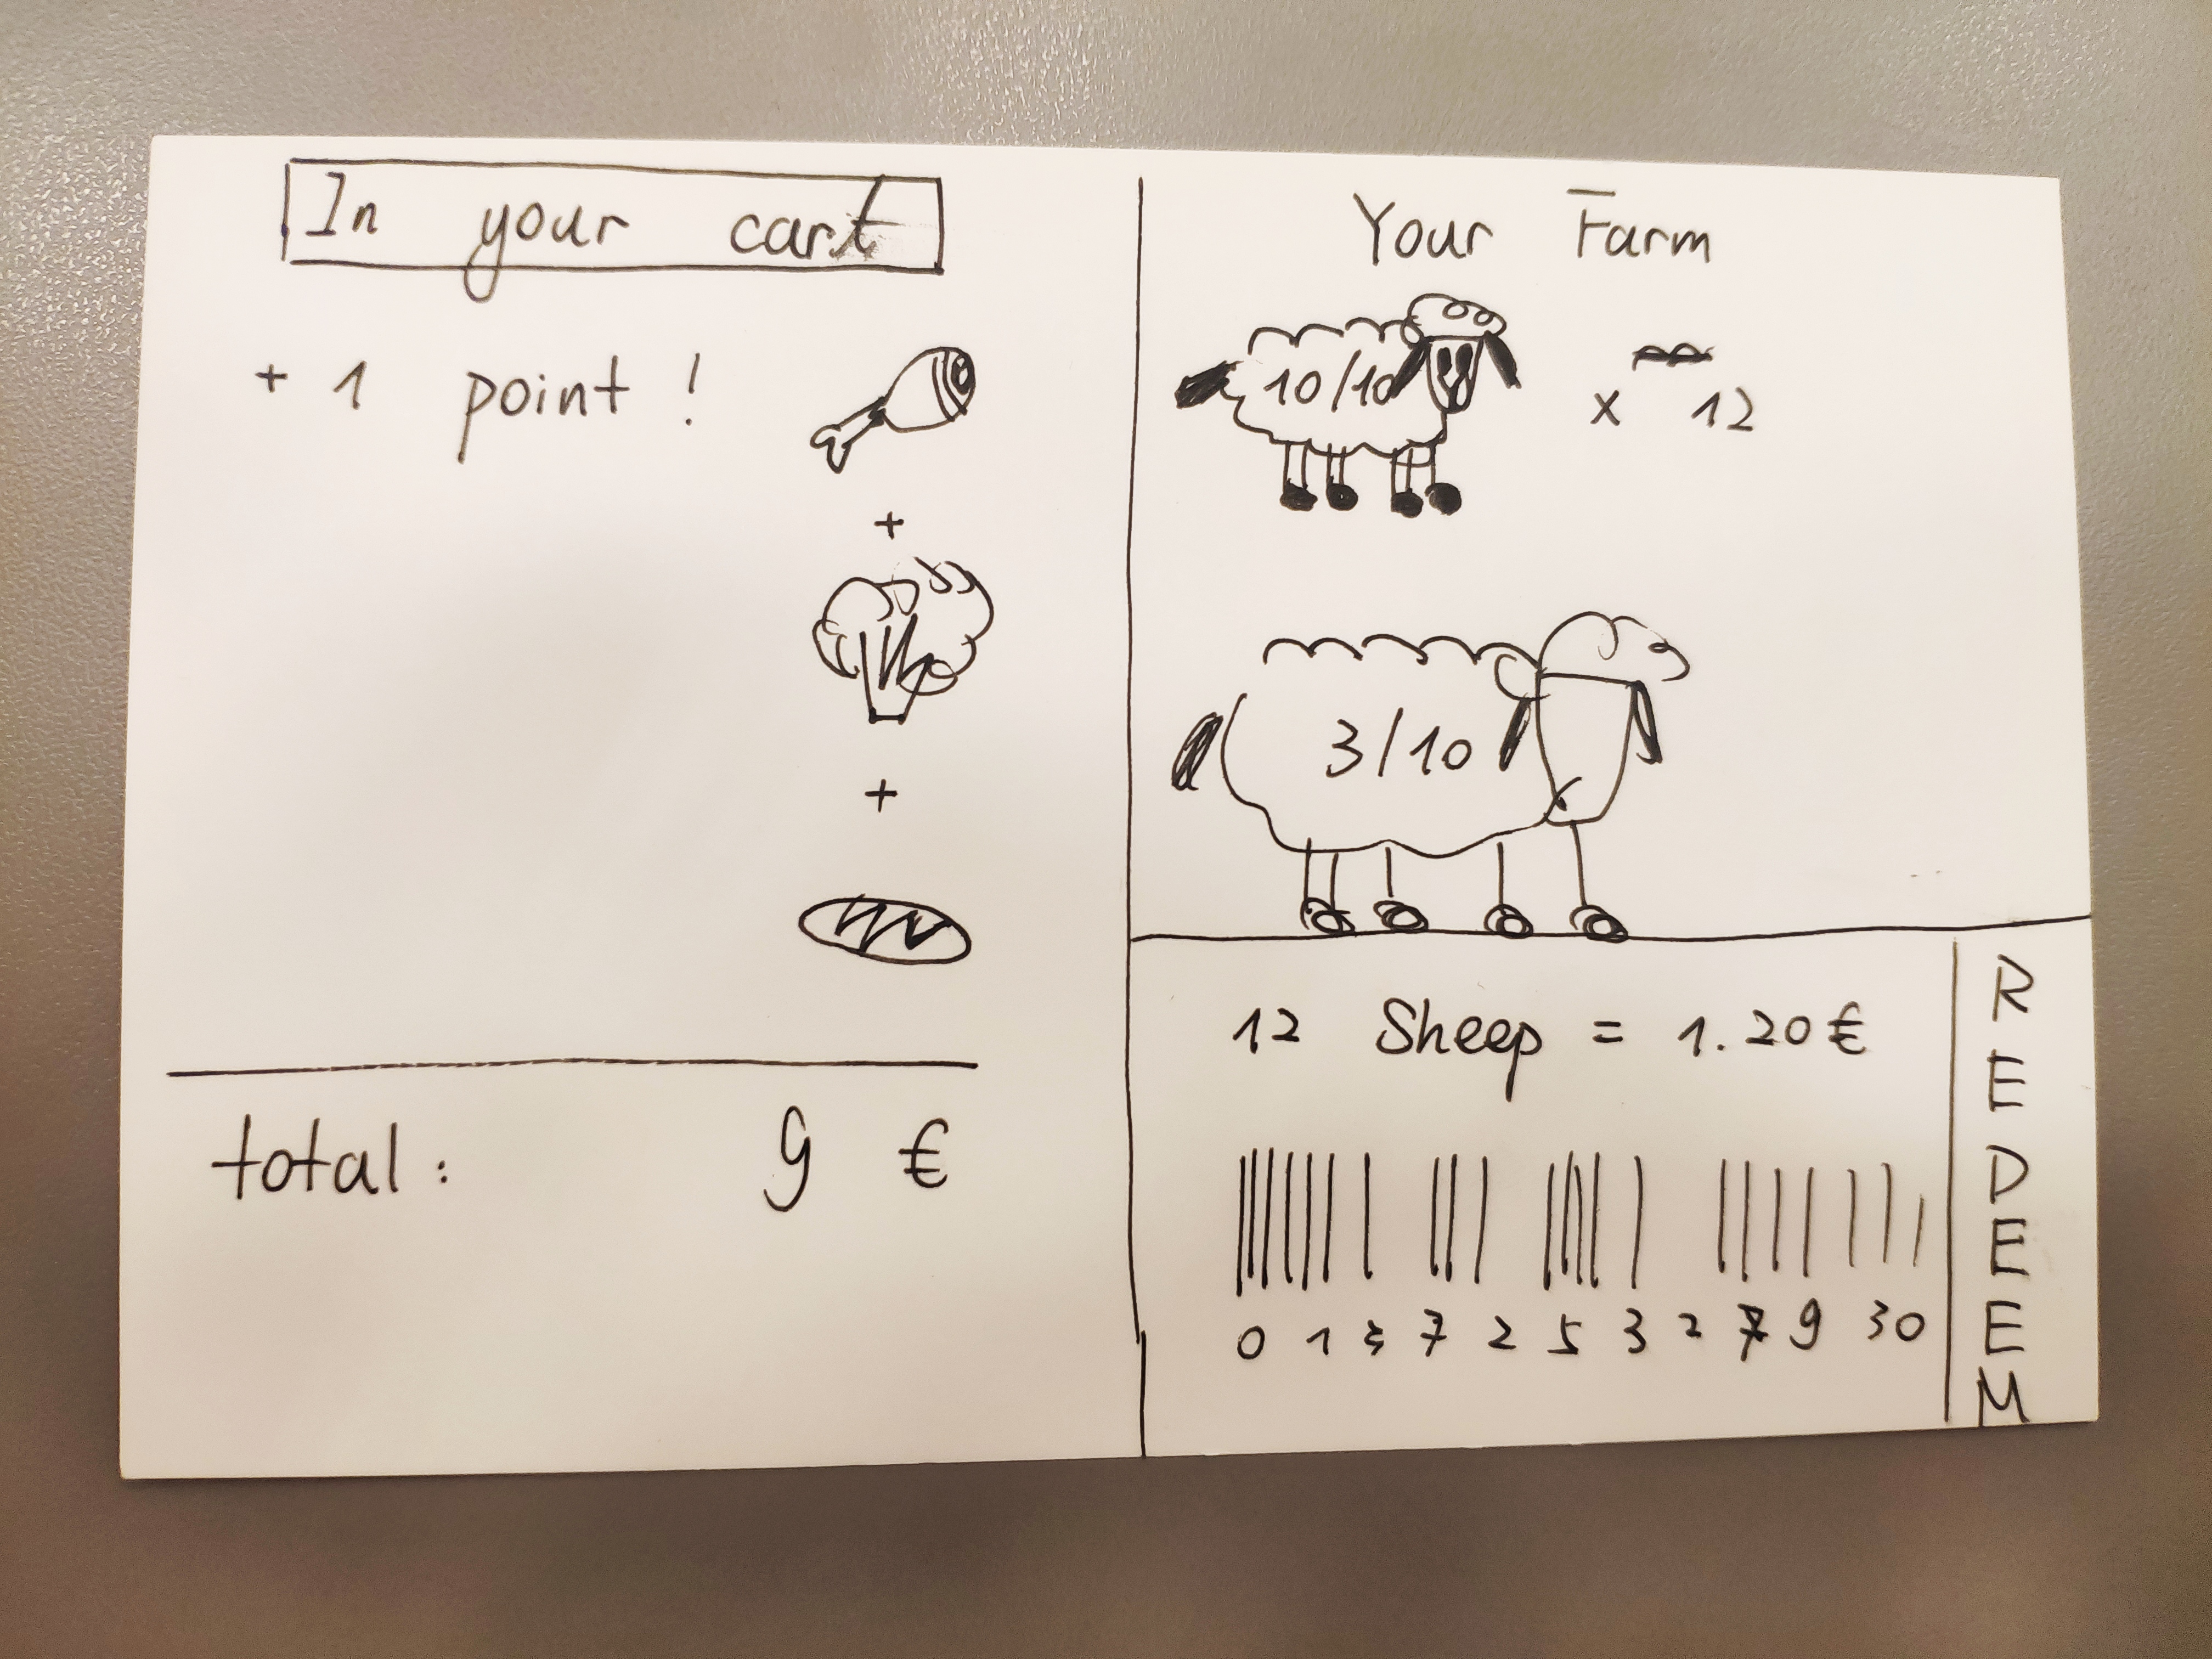 In your cart
+ 1 point !
+
+
total: 9 €
Your Farm
10/10
x 12
3/10
12 Sheep = 1.20€
0 1 3 7 2 5 3 2 7 9 30
REDEEM